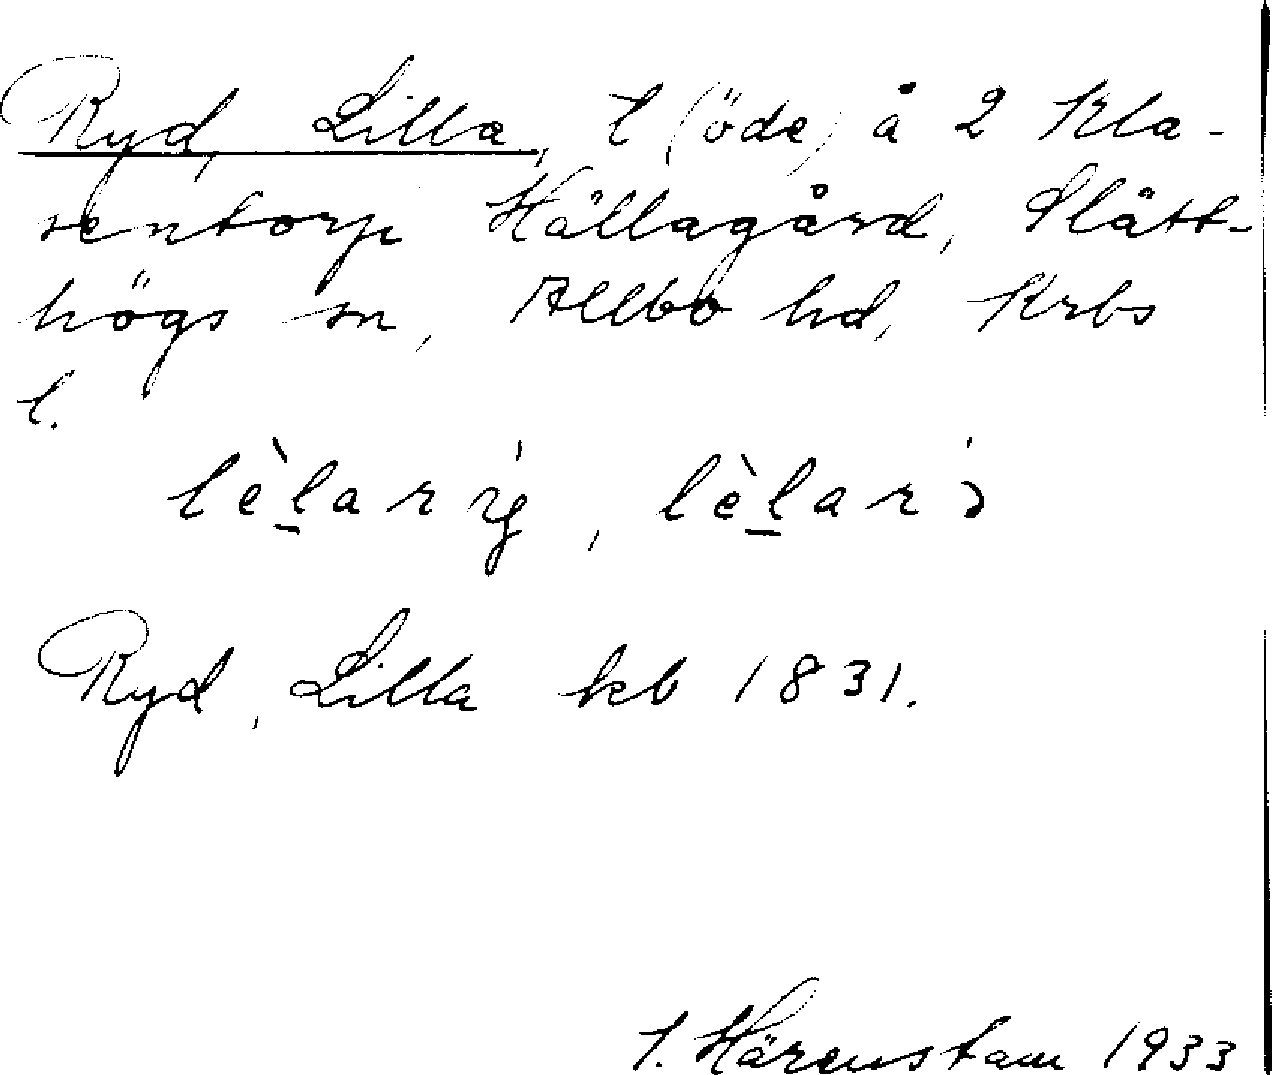 Ryd, Lilla, l (öde) å 2 Kla-
sentorp Hällagård, Slätt-
högs sn, Allbo hd, Krbs
l.
lèḻar , lèḻar
Ryd, Lilla kb 1831.
Härenstam 1933